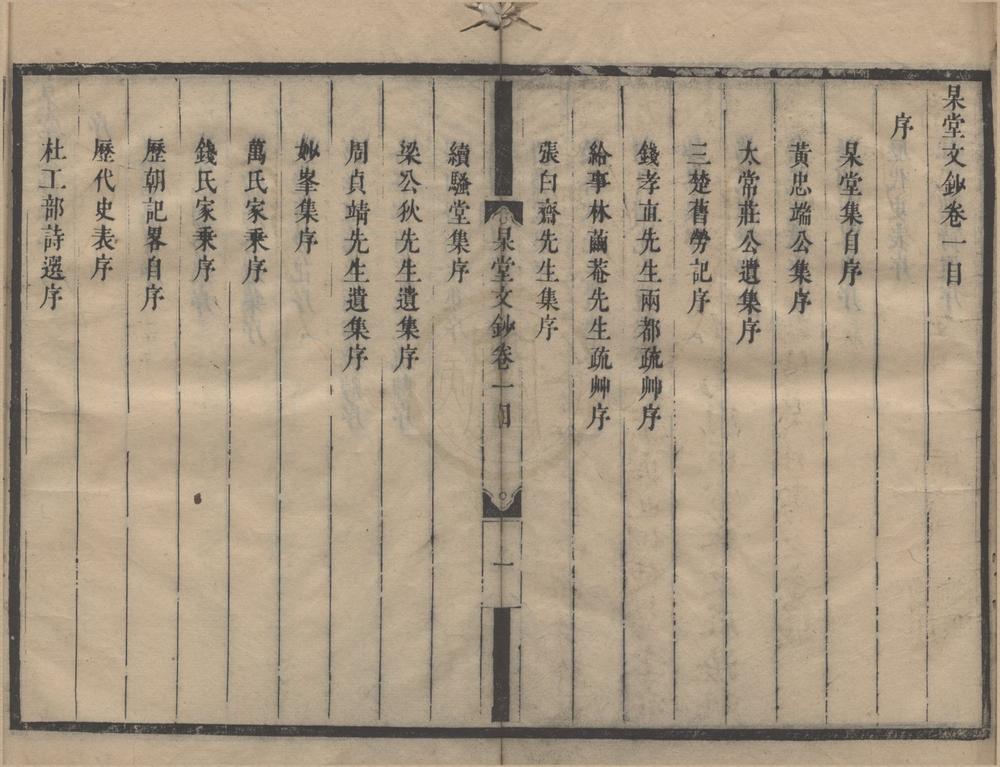 杲堂文鈔卷一目
序
杲堂集自序
黃忠端公集序
太常莊公遺集序
三楚舊勞記序
錢孝直先生兩都疏艸序
給事林繭菴先生疏艸序
張白齋先生集序
杲堂文鈔卷一目
一
續騷堂集序
梁公狄先生遺集序
周貞靖先生遺集序
妙峯集序
萬氏家乘序
錢氏家乘序
歷朝記畧自序
歷代史表序
杜工部詩選序